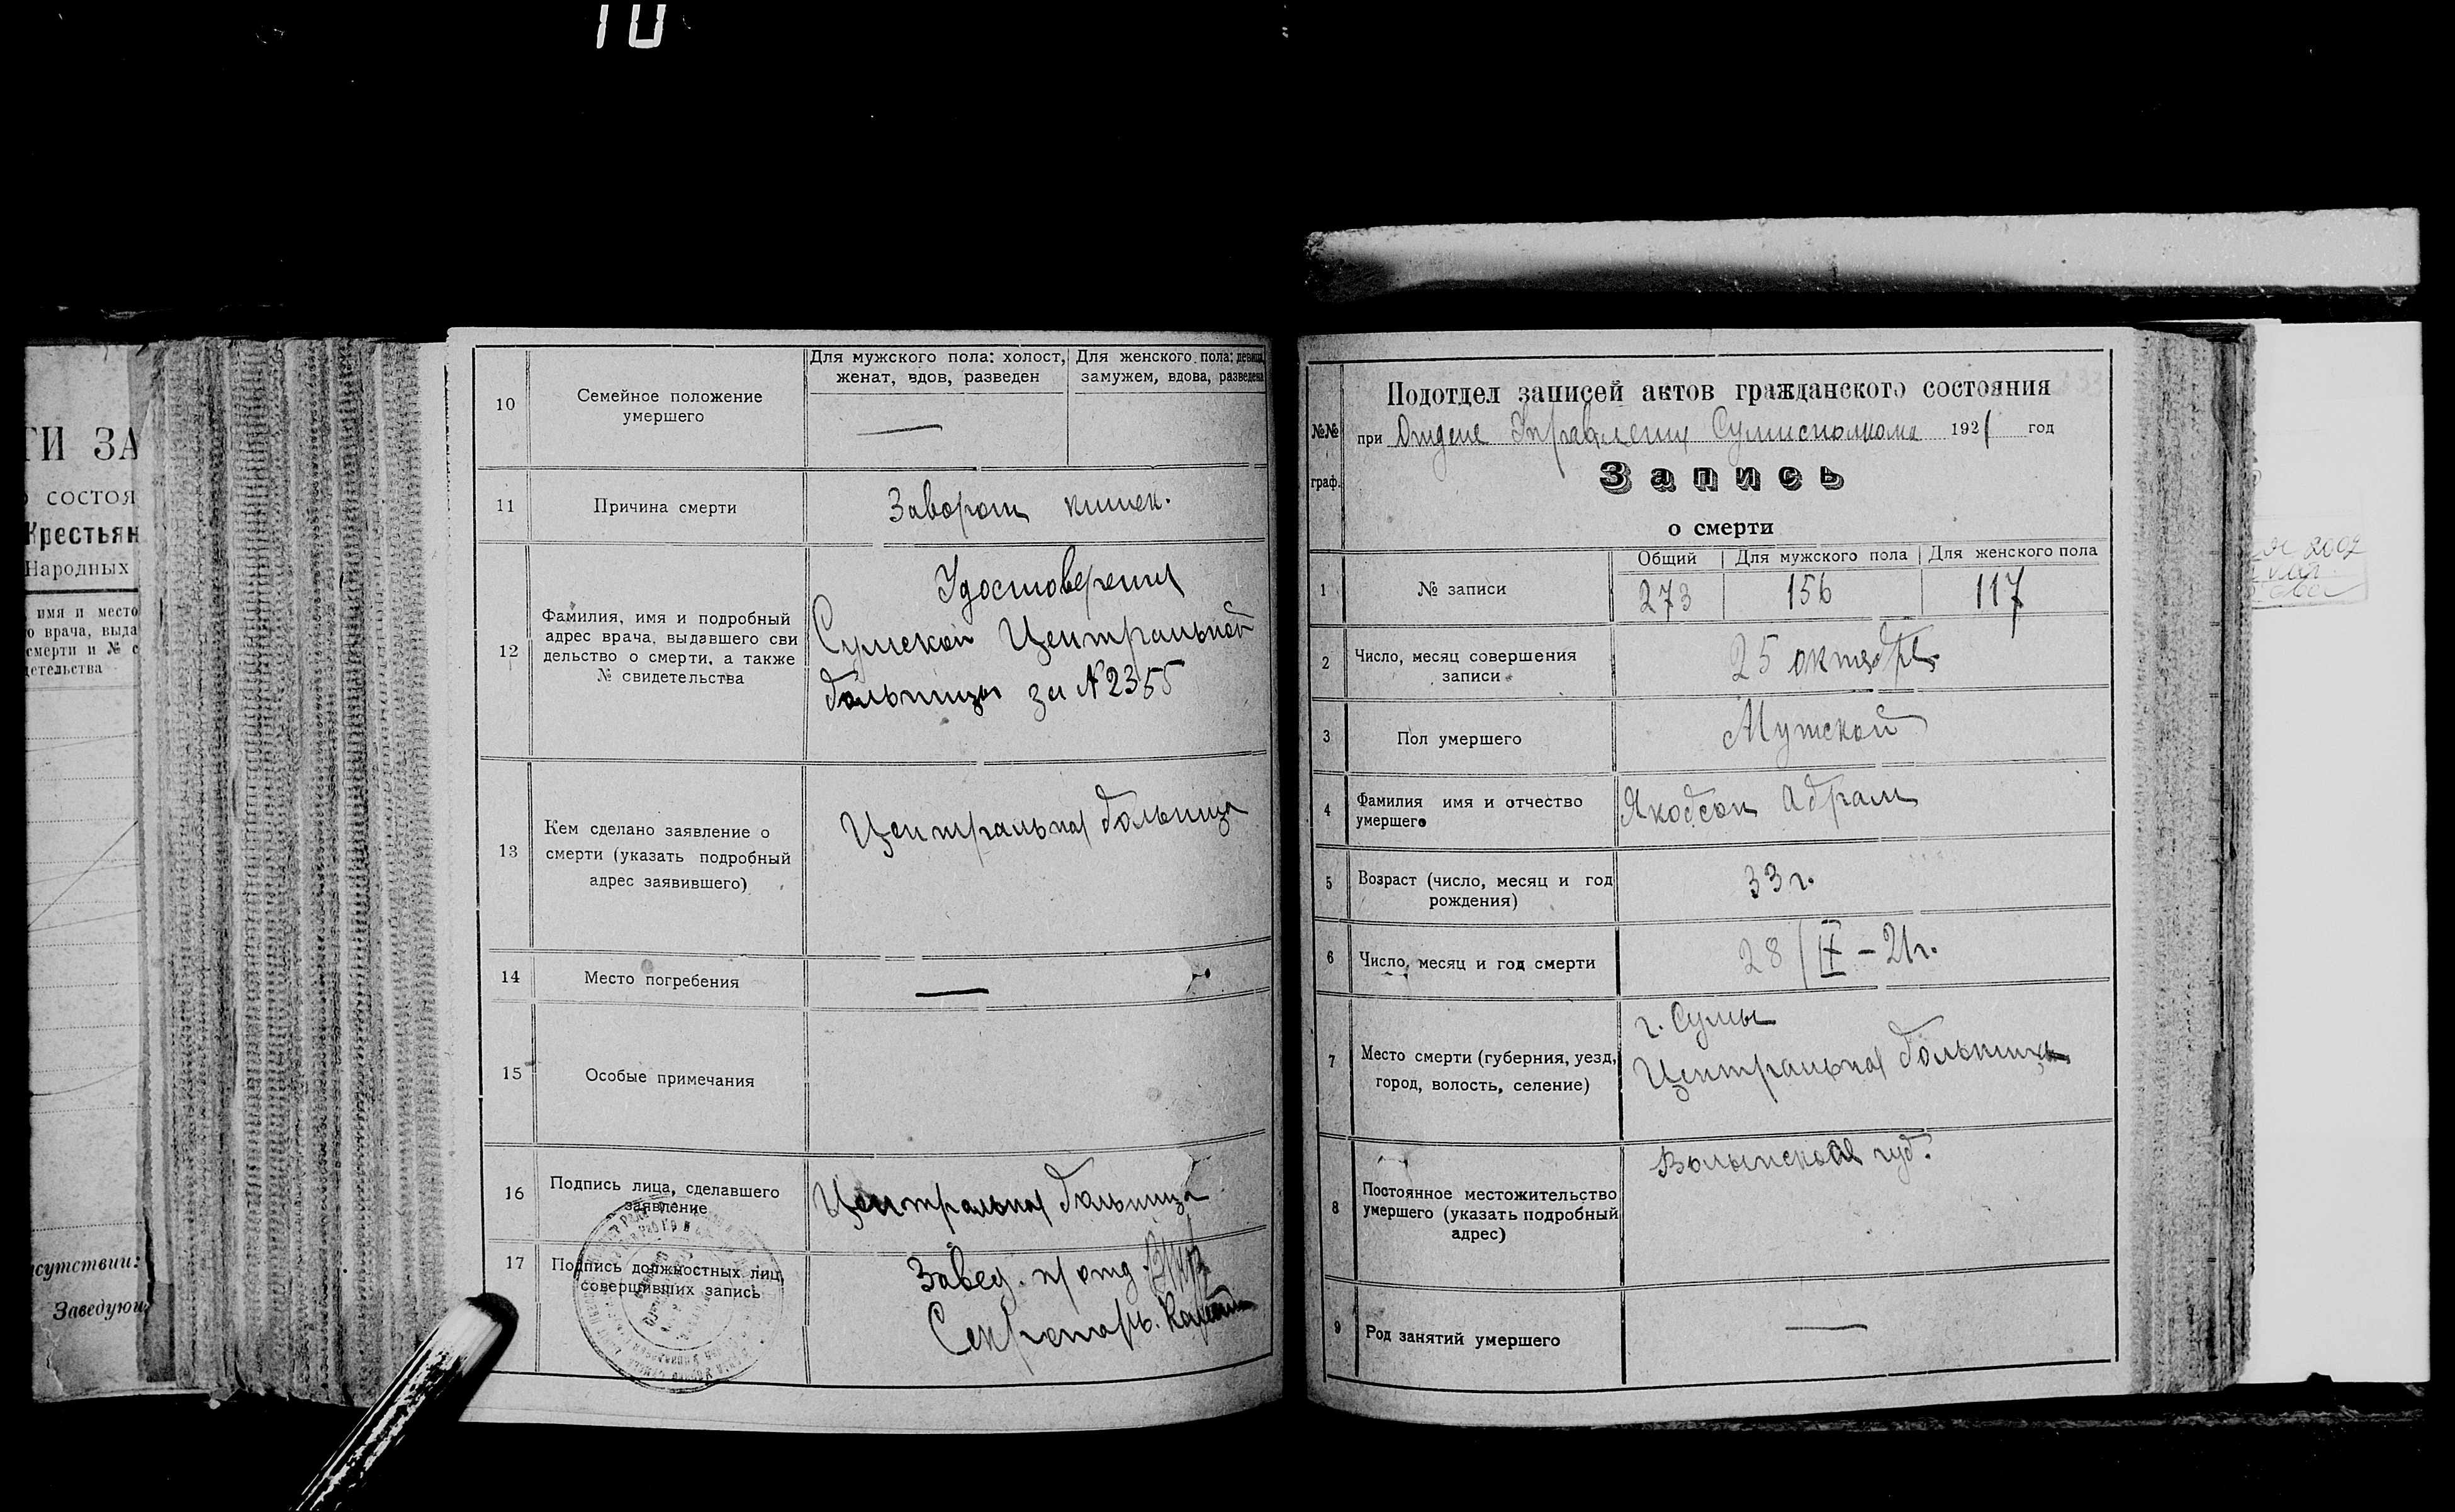 10
ТИ ЗА
СОСТОЯ
Крестьян
Народных
имя и место
о врача, выда
смерти и № с
детельства
Заведую
10
Семейное положение
умершего
Для мужского пола: холост,
женат, вдов, разведен
Для женского пола: девица,
замужем, вдова, разведена
—
11
Причина смерти
Заворот кишек.
12
Фамилия, имя и подробный
адрес врача, выдавшего сви
дельство о смерти, а также
№ свидетельства
Удостоверения
Сумской Центральной
больницы за № 2355
13
Кем сделано заявление о
смерти (указать подробный
адрес заявившего)
Центральная больница
14
Место погребения
—
15
Особые примечания
16
Подпись лица, сделавшего
заявление
Центральная больница
17
Подпись должностных лиц,
совершивших запись
Завед. п/отд.
Секретарь.
№№
граф.
Подотдел записей актов гражданского состояния
при Отделе Управления Сумисполкома 1921 год
Запись
о смерти
1
№ записи
Общий
Для мужского пола
Для женского пола
273
156
117
2
Число, месяц совершения
записи
25 октября
3
Пол умершего
Мужской
4
Фамилия имя и отчество
умершего
Якобсон Абрам
5
Возраст (число, месяц и год
рождения)
33 г.
6
Число, месяц и год смерти
28/IX – 21г.
7
Место смерти (губерния, уезд,
город, волость, селение)
г. Сумы
Центральная больница
8
Постоянное местожительство
умершего (указать подробный
адрес)
Волынская губ.
9
Род занятий умершего
—